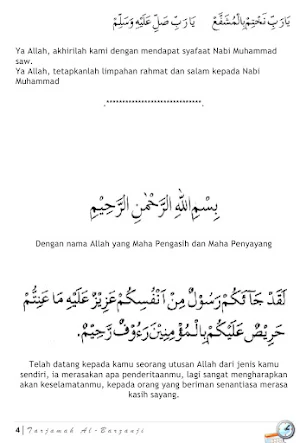 يَارَبِّ نَخْتِمْ بِالْمُشَفَّعْ يَارَبِّ صَلِّ عَلَيْهِ وَسَلِّمْ
Ya Allah, akhirilah kami dengan mendapat syafaat Nabi Muhammad
saw.
Ya Allah, tetapkanlah limpahan rahmat dan salam kepada Nabi
Muhammad
.*****************************.
بِسْمِ اللهِ الرَّحْمٰنِ الرَّحِيْمِ
Dengan nama Allah yang Maha Pengasih dan Maha Penyayang
لَقَدْ جَآئَكُمْ رَسُوْلٌ مِنْ اَنْفُسِكُمْ عَزِيْزٌ عَلَيْهِ مَا عَنِتُّمْ
حَرِيْصٌ عَلَيْكُمْ بِالْمُؤْمِنِيْنَ رَءُوْفٌ رَحِيْمٌ.
Telah datang kepada kamu seorang utusan Allah dari jenis kamu
sendiri, ia merasakan apa penderitaanmu, lagi sangat mengharapkan
akan keselamatanmu, kepada orang yang beriman senantiasa merasa
kasih sayang.
4 | Tarjamah Al-Barzanji